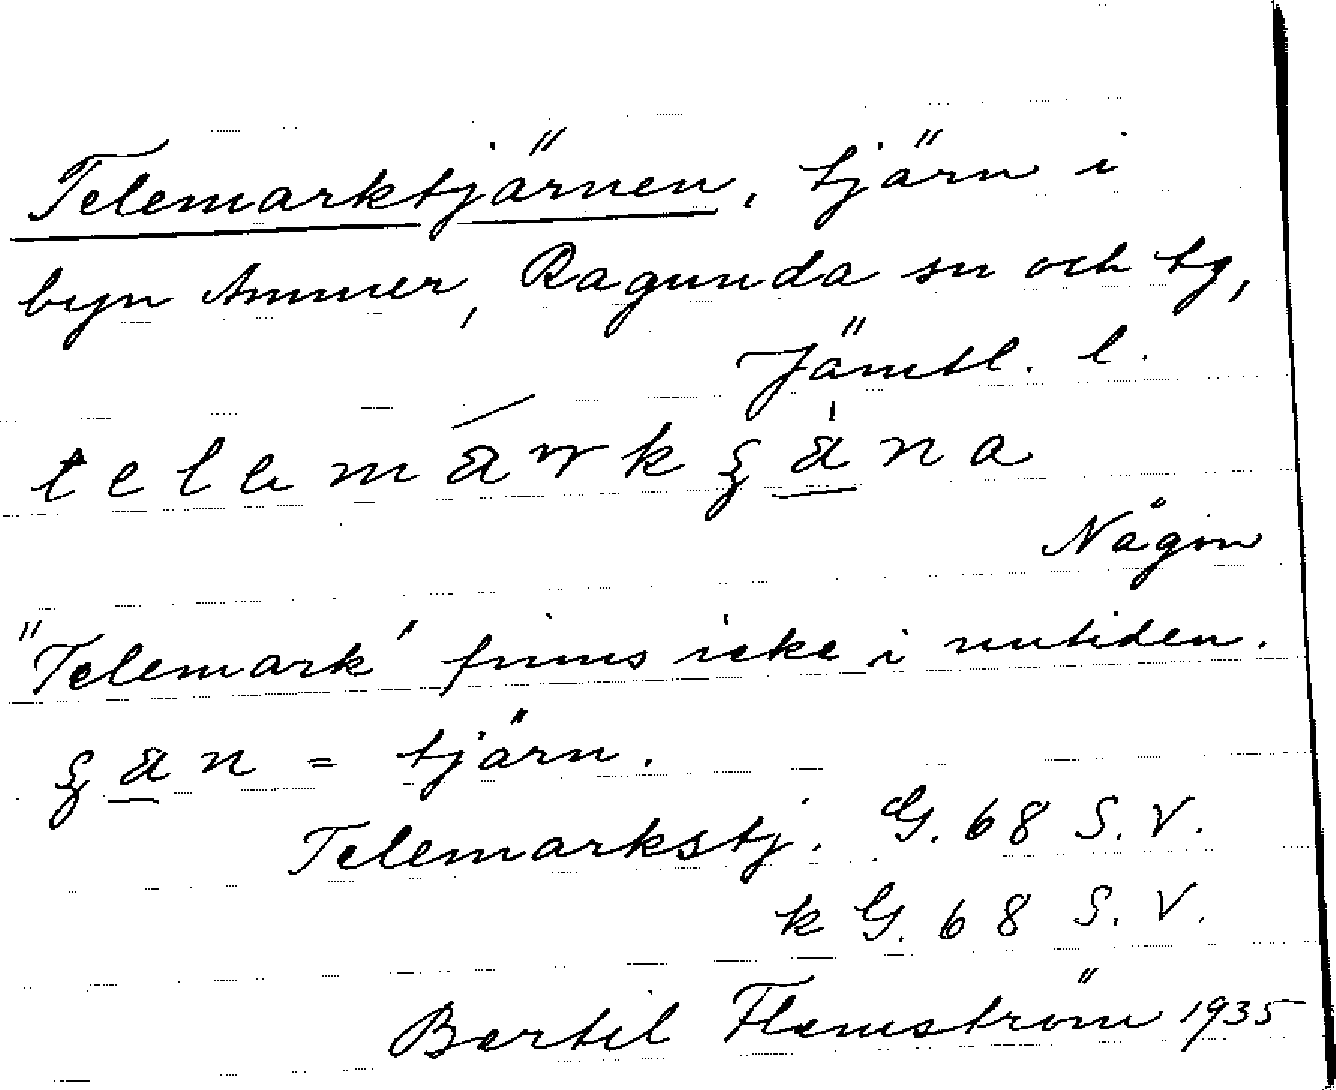 Telemarktjärnen, tjärn i
byn Ammer, Ragunda sn och tg,
Jämtl. l.
Någon
"Telemark" finns icke i nutiden.
= tjärn.
Telemarkstj. G. 68 S.V.
k G. 68 S.V.
Bertil Flemström 1935